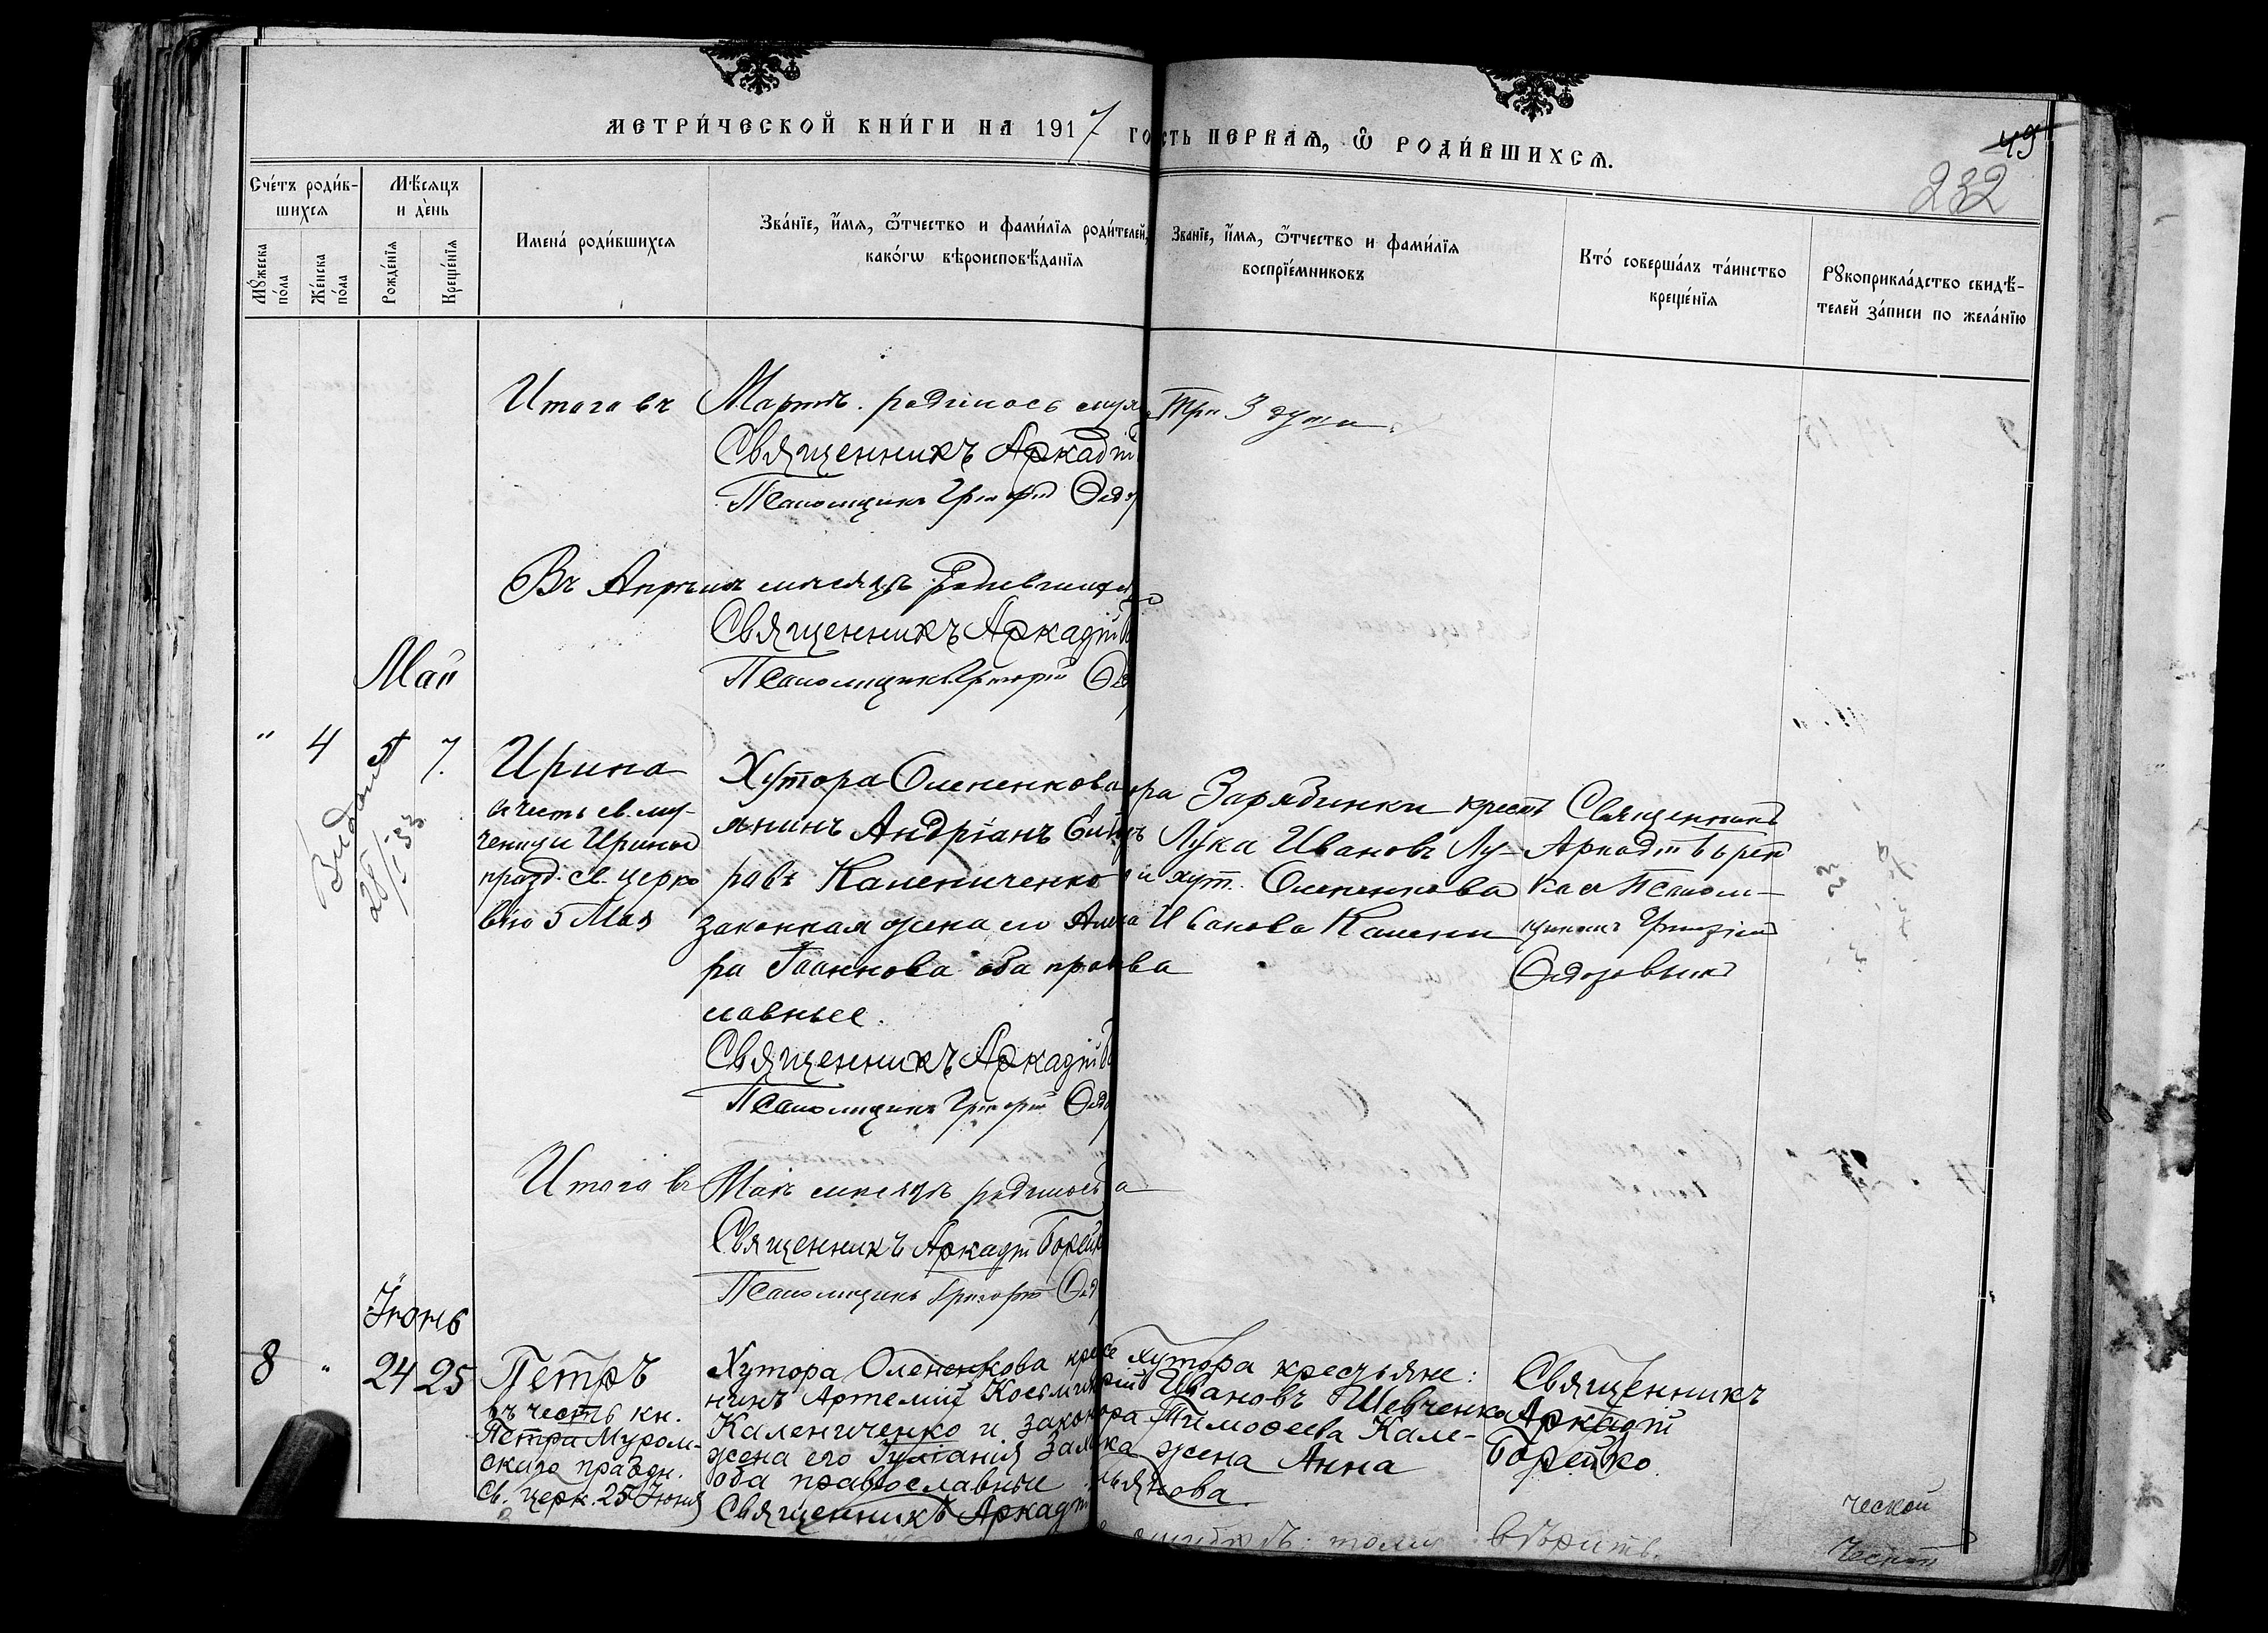 МЕТРИ́ЧЕСКОЙ КНИ́ГИ НА 1917 ГО
СТЬ ПЕРВАѦ, Ѽ РОДИ́ВШИХСѦ.
49
232
Сче́тъ роди́в-
шихсѧ
Мꙋ́жеска
по́ла
Же́нска
по́ла
Мѣ́сѧцъ
и де́нь
Рожде́нїѧ
Креще́нїѧ
Имена́ роди́вшихсѧ
Зва́нїе, и́мѧ, ѻ́тчество и фами́лїѧ роди́телей,
како́гѡ вѣроисповѣ́данїѧ
Зва́нїе, и́мѧ, ѻ́тчество и фами́лїѧ
воспрїе́мниковъ
Кто́ соверша́лъ та́инство
креще́нїѧ
Рꙋкоприкла́дство свидѣ́-
телей за́писи по жела́нїю
Итого въ Мартѣ родилось
три 3 души
Священникъ Аркадій
Псаломщикъ Григорій Ѳедо
Въ Апрѣлѣ мѣсяцѣ родившихся
Священникъ Аркадій Б
Псаломщикъ Григорій Ѳе
Май
" 4 5 7.
Выдано
28/I 53
Ирина
въ честь св. му-
ченицы Ирины
празд. св. церко
вію 5 Мая
Хутора Олененкова
янинъ Андріанъ
ровъ Калениченко
законная жена его
ра Іоаннова оба правва
славные.
Священникъ Аркадій Б
Псаломщикъ Григорій Ѳедо
ра Зарядинки крест
Лука Ивановъ Лу-
и хут. Олененкова
Иванова Калени
Священникъ
Аркадій Борей
ко и Псалом-
щикъ Григорій
Ѳедоровъ
Итого въ Маѣ мѣсяцѣ родилось
Священникъ Аркадій Борейк
Псаломщикъ Григорій Ѳед
Іюнь
8 " 24 25
Петръ
въ честь кн.
Петра Муром-
скаго праздн.
Св. церк. 25 Іюня
Хутора Олененкова кресе
нинъ Артемій Косьминъ
Калениченко и закон
жена его Іуліанія Зах
оба православные
Священникъ Аркадій
хутора крестьяне:
рій Ивановъ Шевченко
ра Тимоѳеева Кале-
ка жена Анна
ьянова
Священникъ
Аркадій
Борейко.
ошибкѣ: тому вѣрить.
ческой
ческой